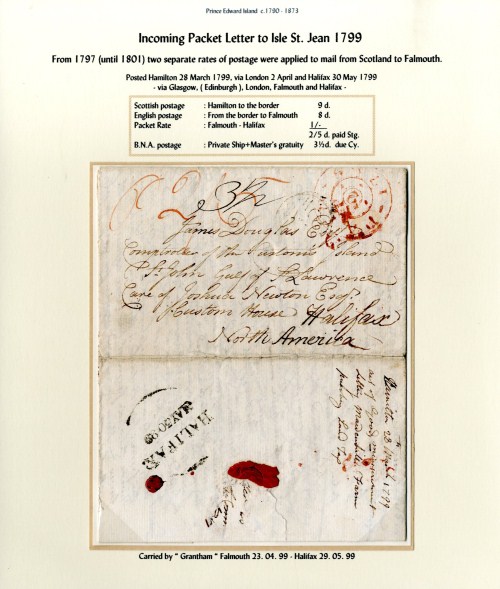 Prince Edward Island c.1790 - 1873
Incoming Packet Letter to Isle St. Jean 1799
From 1797 (until 1801) two separate rates of postage were applied to mail from Scotland to Falmouth.
Posted Hamilton 28 March 1799, via London 2 April and Halifax 30 May 1799
- via Glasgow, ( Edinburgh ), London, Falmouth and Halifax -
Scottish postage : Hamilton to the border 9 d.
English postage : From the border to Falmouth 8 d.
Packet Rate : Falmouth - Halifax 1/-
2/5 d. paid Stg.
B.N.A. postage : Private Ship+Master's gratuity 3½d. due Cy.
James Douglas Esqr
Comptroller of the Customs Island
St. John Gulf of St Lawrence
Care of Joshua Newton Esqr
Custom House Halifax
North America
HALIFAX
MAY 30 99
Hamilton 28 March 1799
Carried by " Grantham " Falmouth 23. 04. 99 - Halifax 29. 05. 99